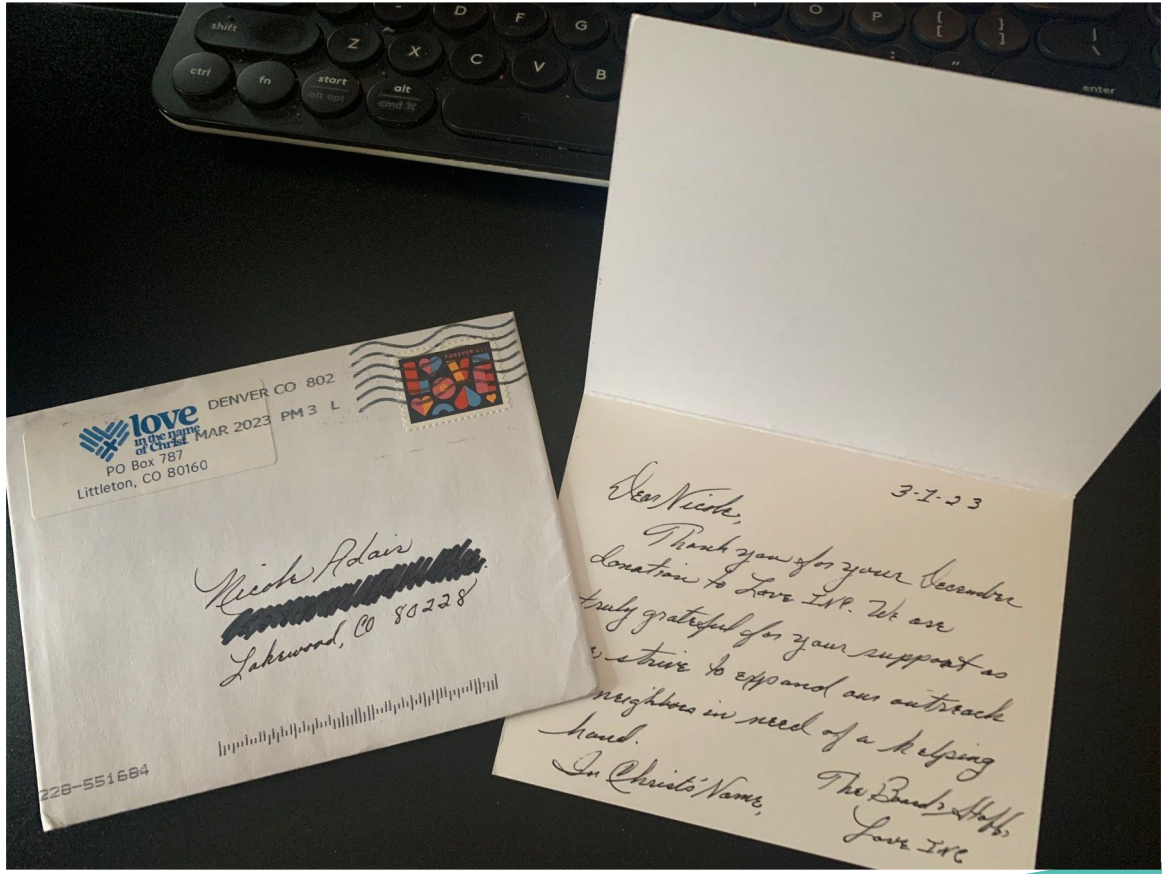 shift
Z
X
C
V
B
D
F
G
O
P
ctrl
fn
start
alt opt
alt
cmd ⌘
enter
love
in the name
of Christ
PO Box 787
Littleton, CO 80160
DENVER CO 802
MAR 2023 PM 3 L
FOREVER
LOVE
Nicole Adair
Lakewood, CO 80228
228-551684
3-1-23
Dear Nicole,
Thank you for your December
donation to Love INC. We are
truly grateful for your support as
strive to expand our outreach
neighbors in need of a helping
hand.
In Christ's Name,
The Board & Staff
Love INC